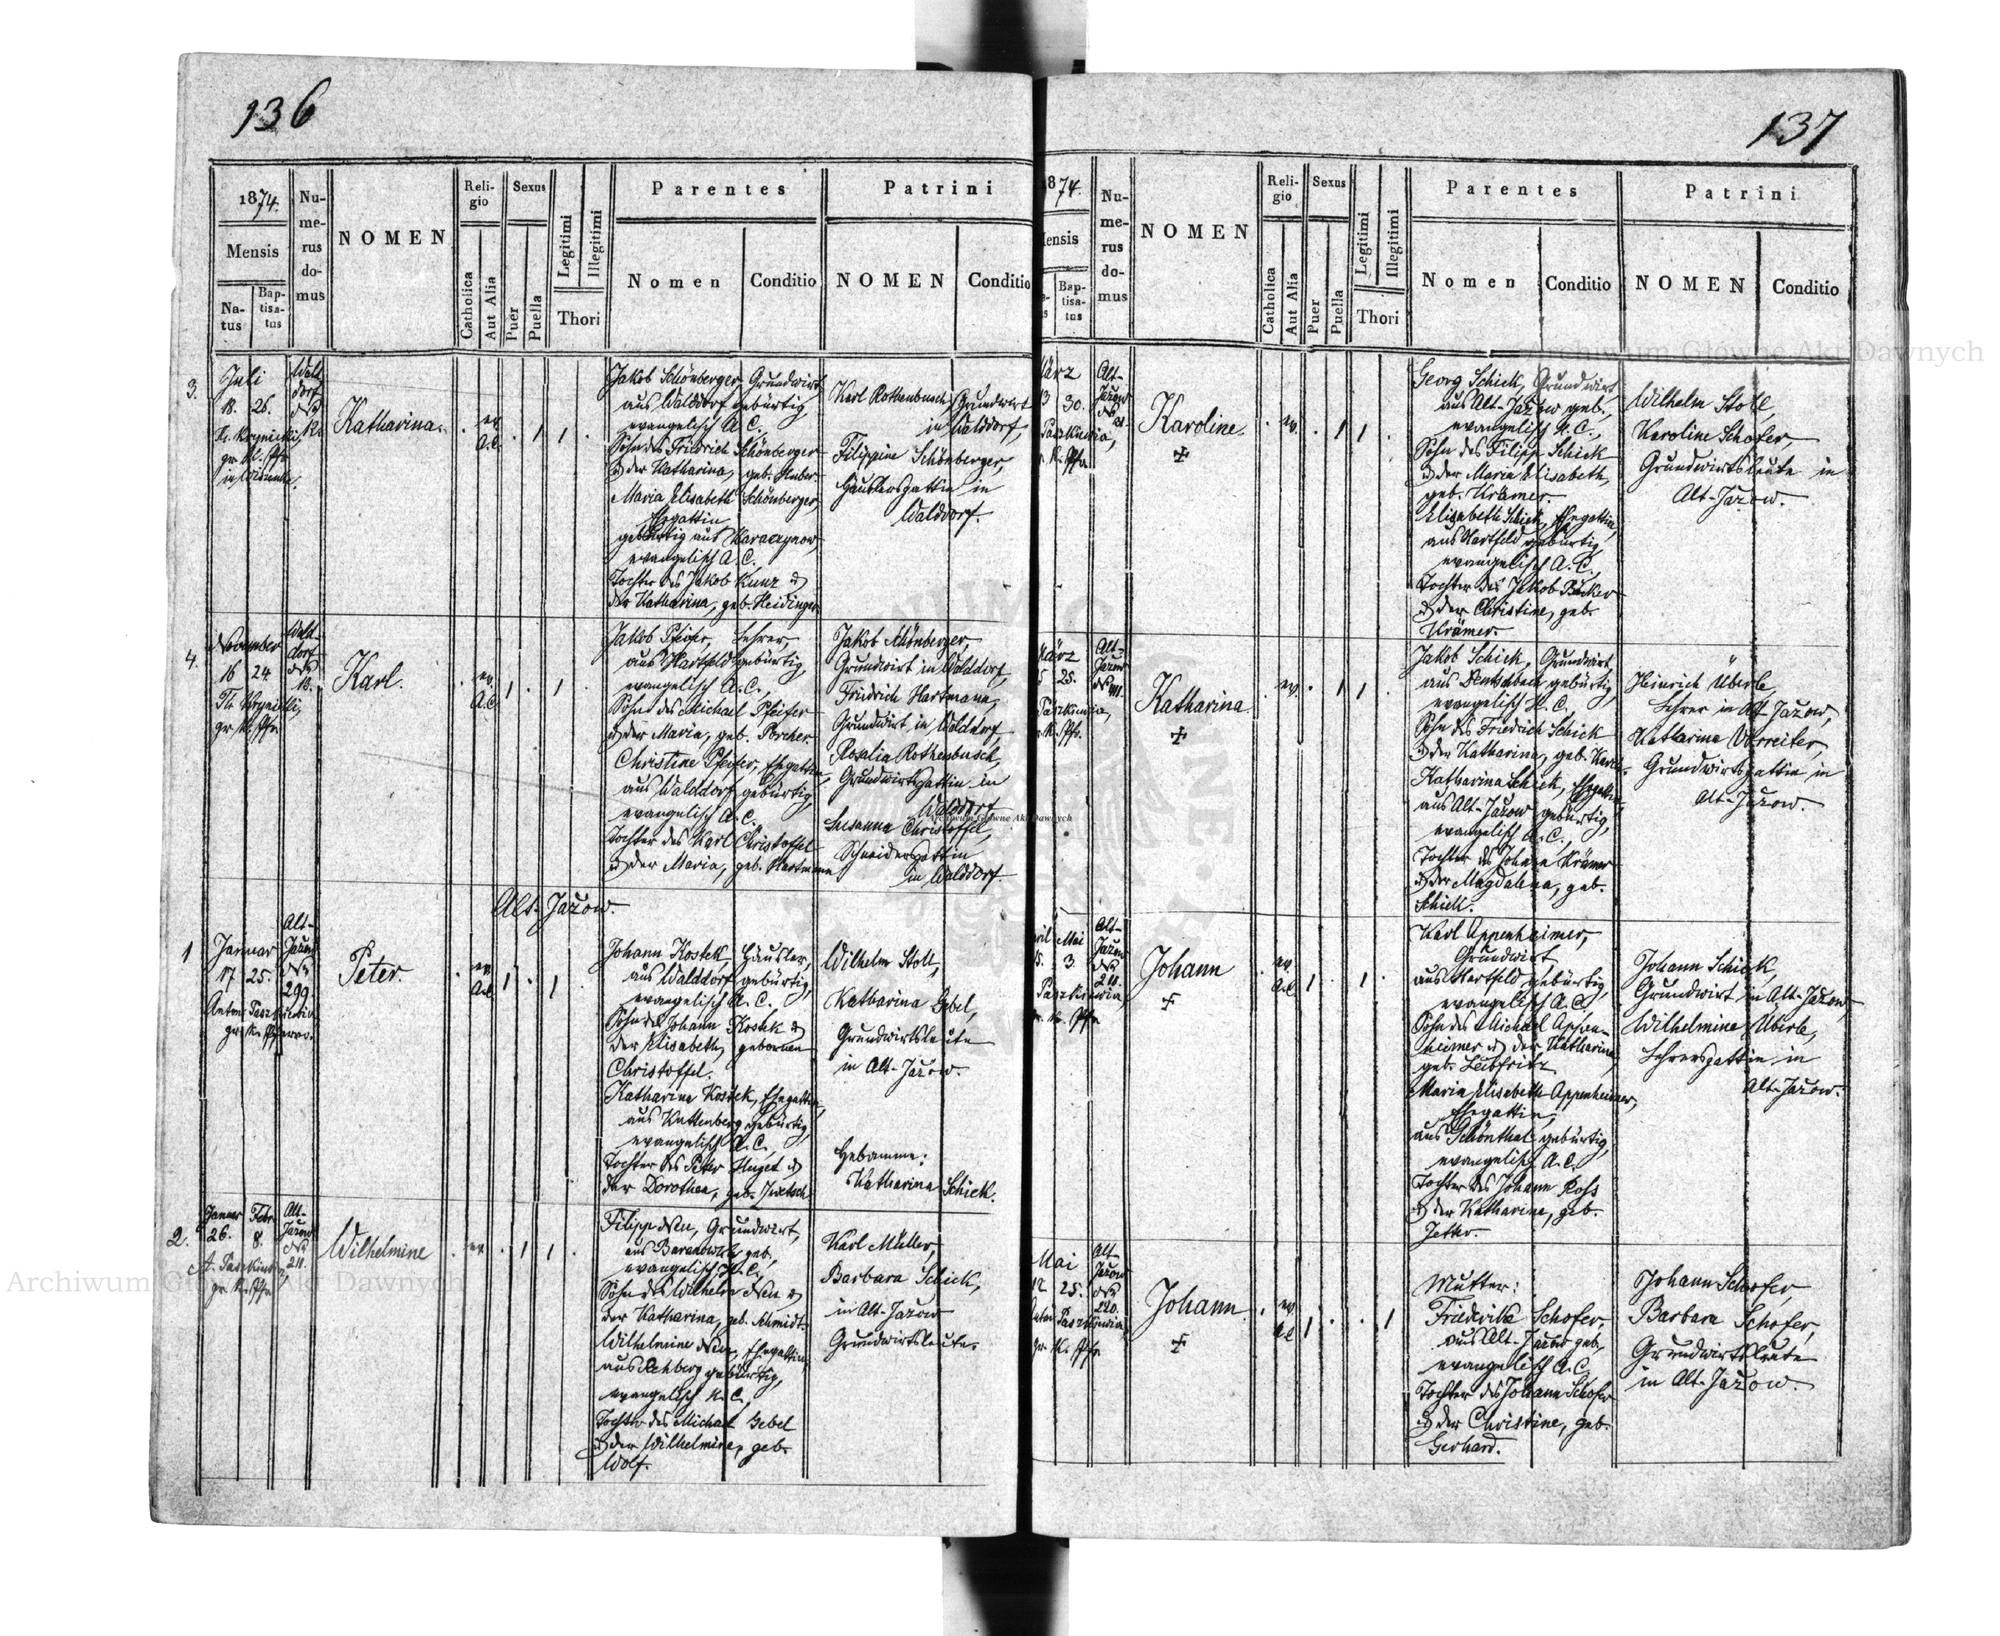 136
1874.
Mensis
Na-
tus
Bap-
tisa-
tus
Nu-
me-
rus
do-
mus
NOMEN
Reli-
gio
Catholica
Aut Alia
Sexus
Puer
Puella
Legitimi
Illegitimi
Thori
Parentes
Nomen
Conditio
Patrini
NOMEN
Conditio
3.
Juli
18. 26.
gr. k. Pfr.
Wald
dorf
No
12.
Katharina.
ev.
A.C.
Jakob Schönberger Grundwirt
aus Walddorf gebürtig,
evangelisch A.C.,
Sohn des Friedrich Schönberger
u. der Katharina, geb. Huber.
Maria Elisabeth Schönberger,
Ehegattin
gebürtig aus
evangelisch A.C.,
Tochter des Jakob Kunz u.
der Katharina, geb. Heidinger
Karl Rothenbusch, Grundwirt
in Walddorf,
Filippine Schönberger,
Häuslersgattin in
Walddorf.
4.
November
16 24
gr. k. Pfr.
Wald-
dorf
No
13.
Karl.
ev.
A.C.
Jakob Pfeifer, Lehrer,
aus Hartfeld gebürtig,
evangelisch A.C.,
Sohn des Michael Pfeifer
u. der Maria, geb. Porcher.
Christine Pfeifer, Ehegattin,
aus Walddorf gebürtig,
evangelisch A.C.,
Tochter des Karl Christoffel
u. der Maria, geb. Hartmann
Jakob Schönberger,
Grundwirt in Walddorf,
Friedrich Hartmann,
Grundwirt in Walddorf
Rosalia Rothenbusch,
Grundwirtsgattin in
Walddorf
Susanna Christoffel,
Schneidersgattin
in Walddorf.
Alt-Jazow.
1
Januar
17 25.
Anton Paszkiewicz
gr. k. Pfarrer.
Alt-
Jazow
No
299.
Peter.
ev.
A.C.
Johann Kostek, Häusler,
aus Walddorf gebürtig,
evangelisch A.C.,
Sohn des Johann Kostek u.
der Elisabeth, gebornen
Christoffel.
Katharina Kostek, Ehegattin,
aus Kuttenberg gebürtig,
evangelisch A.C.,
Tochter des Peter Huget u.
der Dorothea, geb.
Wilhelm Stoll,
Katharina Gebel,
Grundwirtsleute
in Alt-Jazow.
Hebamme:
Katharina Schick.
2.
Januar Febr
26. 8.
gr. k. Pfr
Alt-
Jazow
No
211.
Wilhelmine
ev.
Filipp Den, Grundwirt,
aus geb.,
evangelisch H.C.,
Sohn des Wilhelm Den u.
der Katharina, geb. Schmidt.
Wilhelmine Den, Ehegattin,
aus Rehberg gebürtig,
evangelisch H.C.,
Tochter des Michael Gebel
u. der Wilhelmine, geb.
Wolf.
Karl Müller,
Barbara Schick,
in Alt-Jazow
Grundwirtsleute.
137
1874.
Mensis
Bap-
tisa-
tus
Nu-
me-
rus
do-
mus
NOMEN
Reli-
gio
Catholica
Aut Alia
Sexus
Puer
Puella
Legitimi
Illegitimi
Thori
Parentes
Nomen
Conditio
Patrini
NOMEN
Conditio
März
30.
Alt-
Jazow
No
Karoline.
ev.
Georg Schick, Grundwirt,
aus Alt-Jazow geb.,
evangelisch H.C.,
Sohn des Filipp Schick
u. der Maria Elisabeth,
geb. Krämer.
Elisabeth Schick, Ehegattin,
aus Hartfeld gebürtig,
evangelisch A.C.,
Tochter des Jakob Bäcker
u. der Christine, geb.
Krämer.
Wilhelm Stoll,
Karoline Schofer,
Grundwirtsleute in
Alt-Jazow.
März
25.
Alt-
Jazow
No
Katharina
ev.
Jakob Schick, Grundwirt,
aus Deutschbach gebürtig,
evangelisch H.C.,
Sohn des Friedrich Schick
u. der Katharina, geb.
Katharina Schick, Ehegattin,
aus Alt-Jazow gebürtig,
evangelisch A.C.,
Tochter des Johann Krämer
u. der Magdalena, geb.
Schick.
Heinrich Überle,
Lehrer in Alt Jazow,
Katharina Vorreiter,
Grundwirtsgattin in
Alt-Jazow.
Mai
3.
Alt-
Jazow
No
218.
Johann
ev.
A.C.
Karl Appenheimer,
Grundwirt
aus Hartfeld gebürtig,
evangelisch A.C.,
Sohn des Michael Appen-
heimer u. der Katharina,
geb. Leibfritz
Maria Elisabeth Appenheimer,
Ehegattin,
aus Schönthal gebürtig,
evangelisch A.C.,
Tochter des Johann Ross
u. der Katharina, geb.
Johann Schick,
Grundwirt in Alt-Jazow,
Wilhelmine Überle,
Lehrersgattin in
Alt-Jazow.
Mai
12 25.
gr. k. Pfr
Alt-
Jazow
No
220.
Johann
ev.
A.C.
Mutter:
Friederike Schofer,
aus Alt-Jazow geb.,
evangelisch A.C.,
Tochter des Johann Schofer
u. der Christine, geb.
Gerhard.
Johann Schofer,
Barbara Schofer,
Grundwirtsleute
in Alt-Jazow.
Archiwum Główne Akt Dawnych
Archiwum Główne Akt Dawnych
Archiwum Główne Akt Dawnych